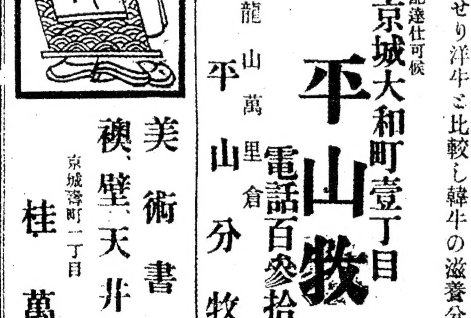 せり洋牛と比較し韓牛の滋養分
配達仕可候
京城大和町壹丁目
平山牧
電話百參拾
龍山萬里倉
平山分牧
美術書
襖、壁、天井
京城壽町一丁目
桂萬